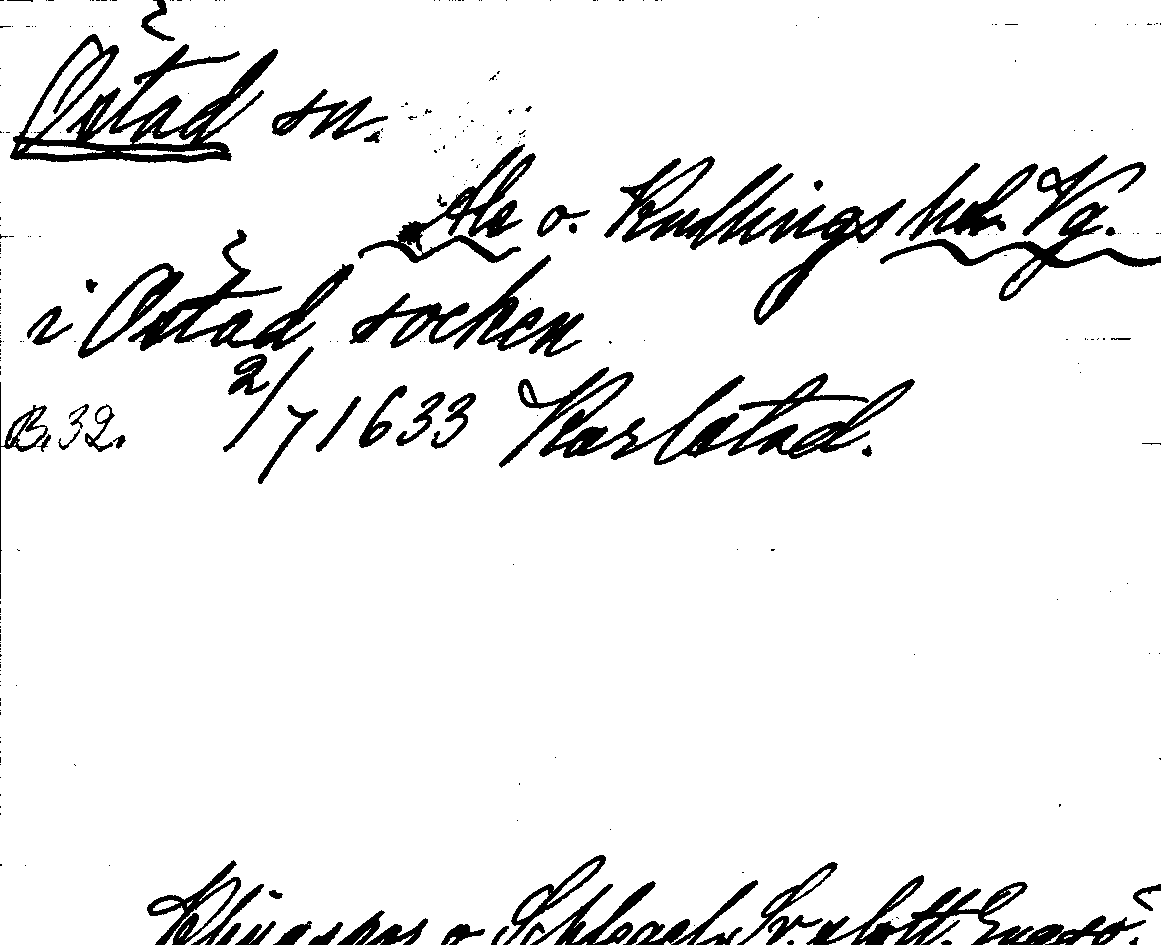 Östad sn.
Ale o. Kullings hd. Vg.
i Östad socken
B. 32. 2/7 1633 Karlstad.
Klingspor o Schlegel, Sv. slott. Engsö.